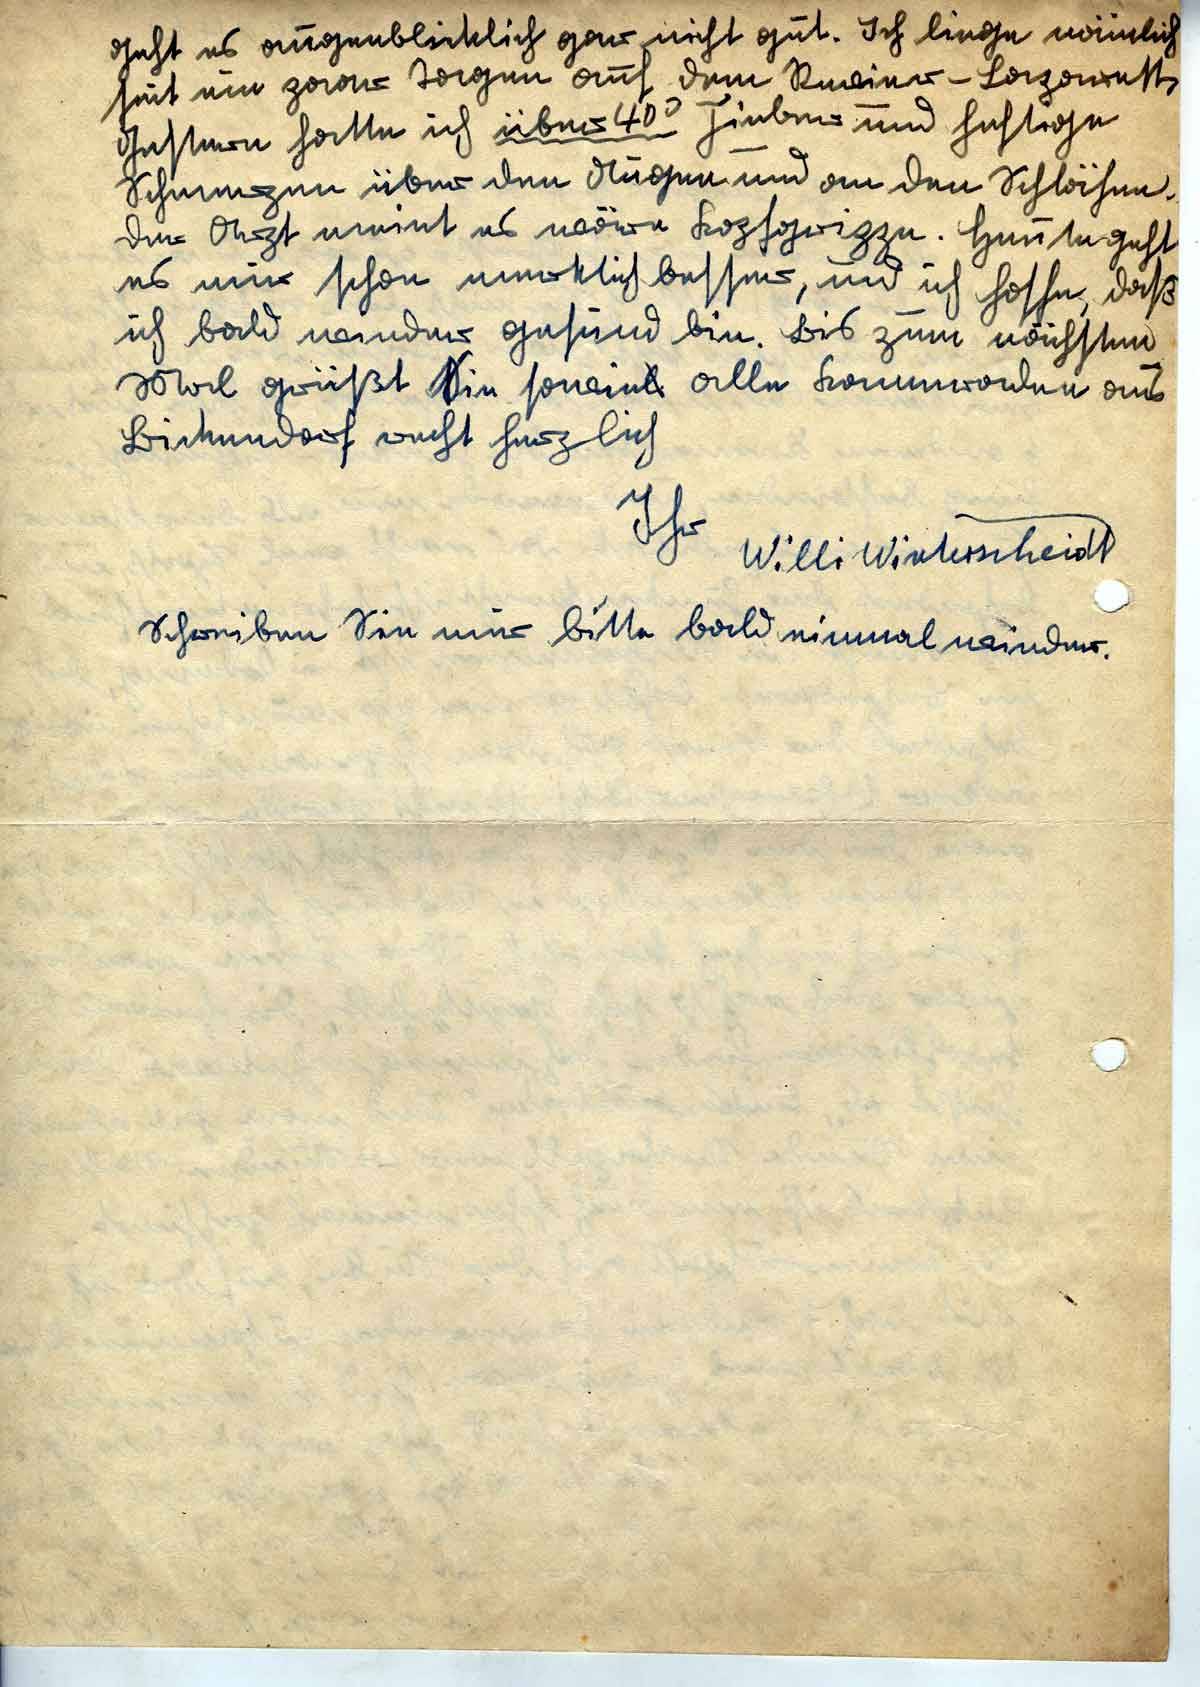 geht es augenblicklich gar nicht gut. Ich liege nämlich
seit ein paar Tagen auf dem Revier-Lazarett.
Gestern hatte ich über 40° Fieber und heftige
Schmerzen über den Augen und an den Schläfen.
Der Arzt meint es wäre Kopfgrippe. Heute geht
es mir schon merklich besser, und ich hoffe, daß
ich bald wieder gesund bin. Bis zum nächsten
Mal grüßt Sie sowie alle Kameraden aus
Bickendorf recht herzlich
Ihr
Willi Winterscheidt
Schreiben Sie mir bitte bald einmal wieder.